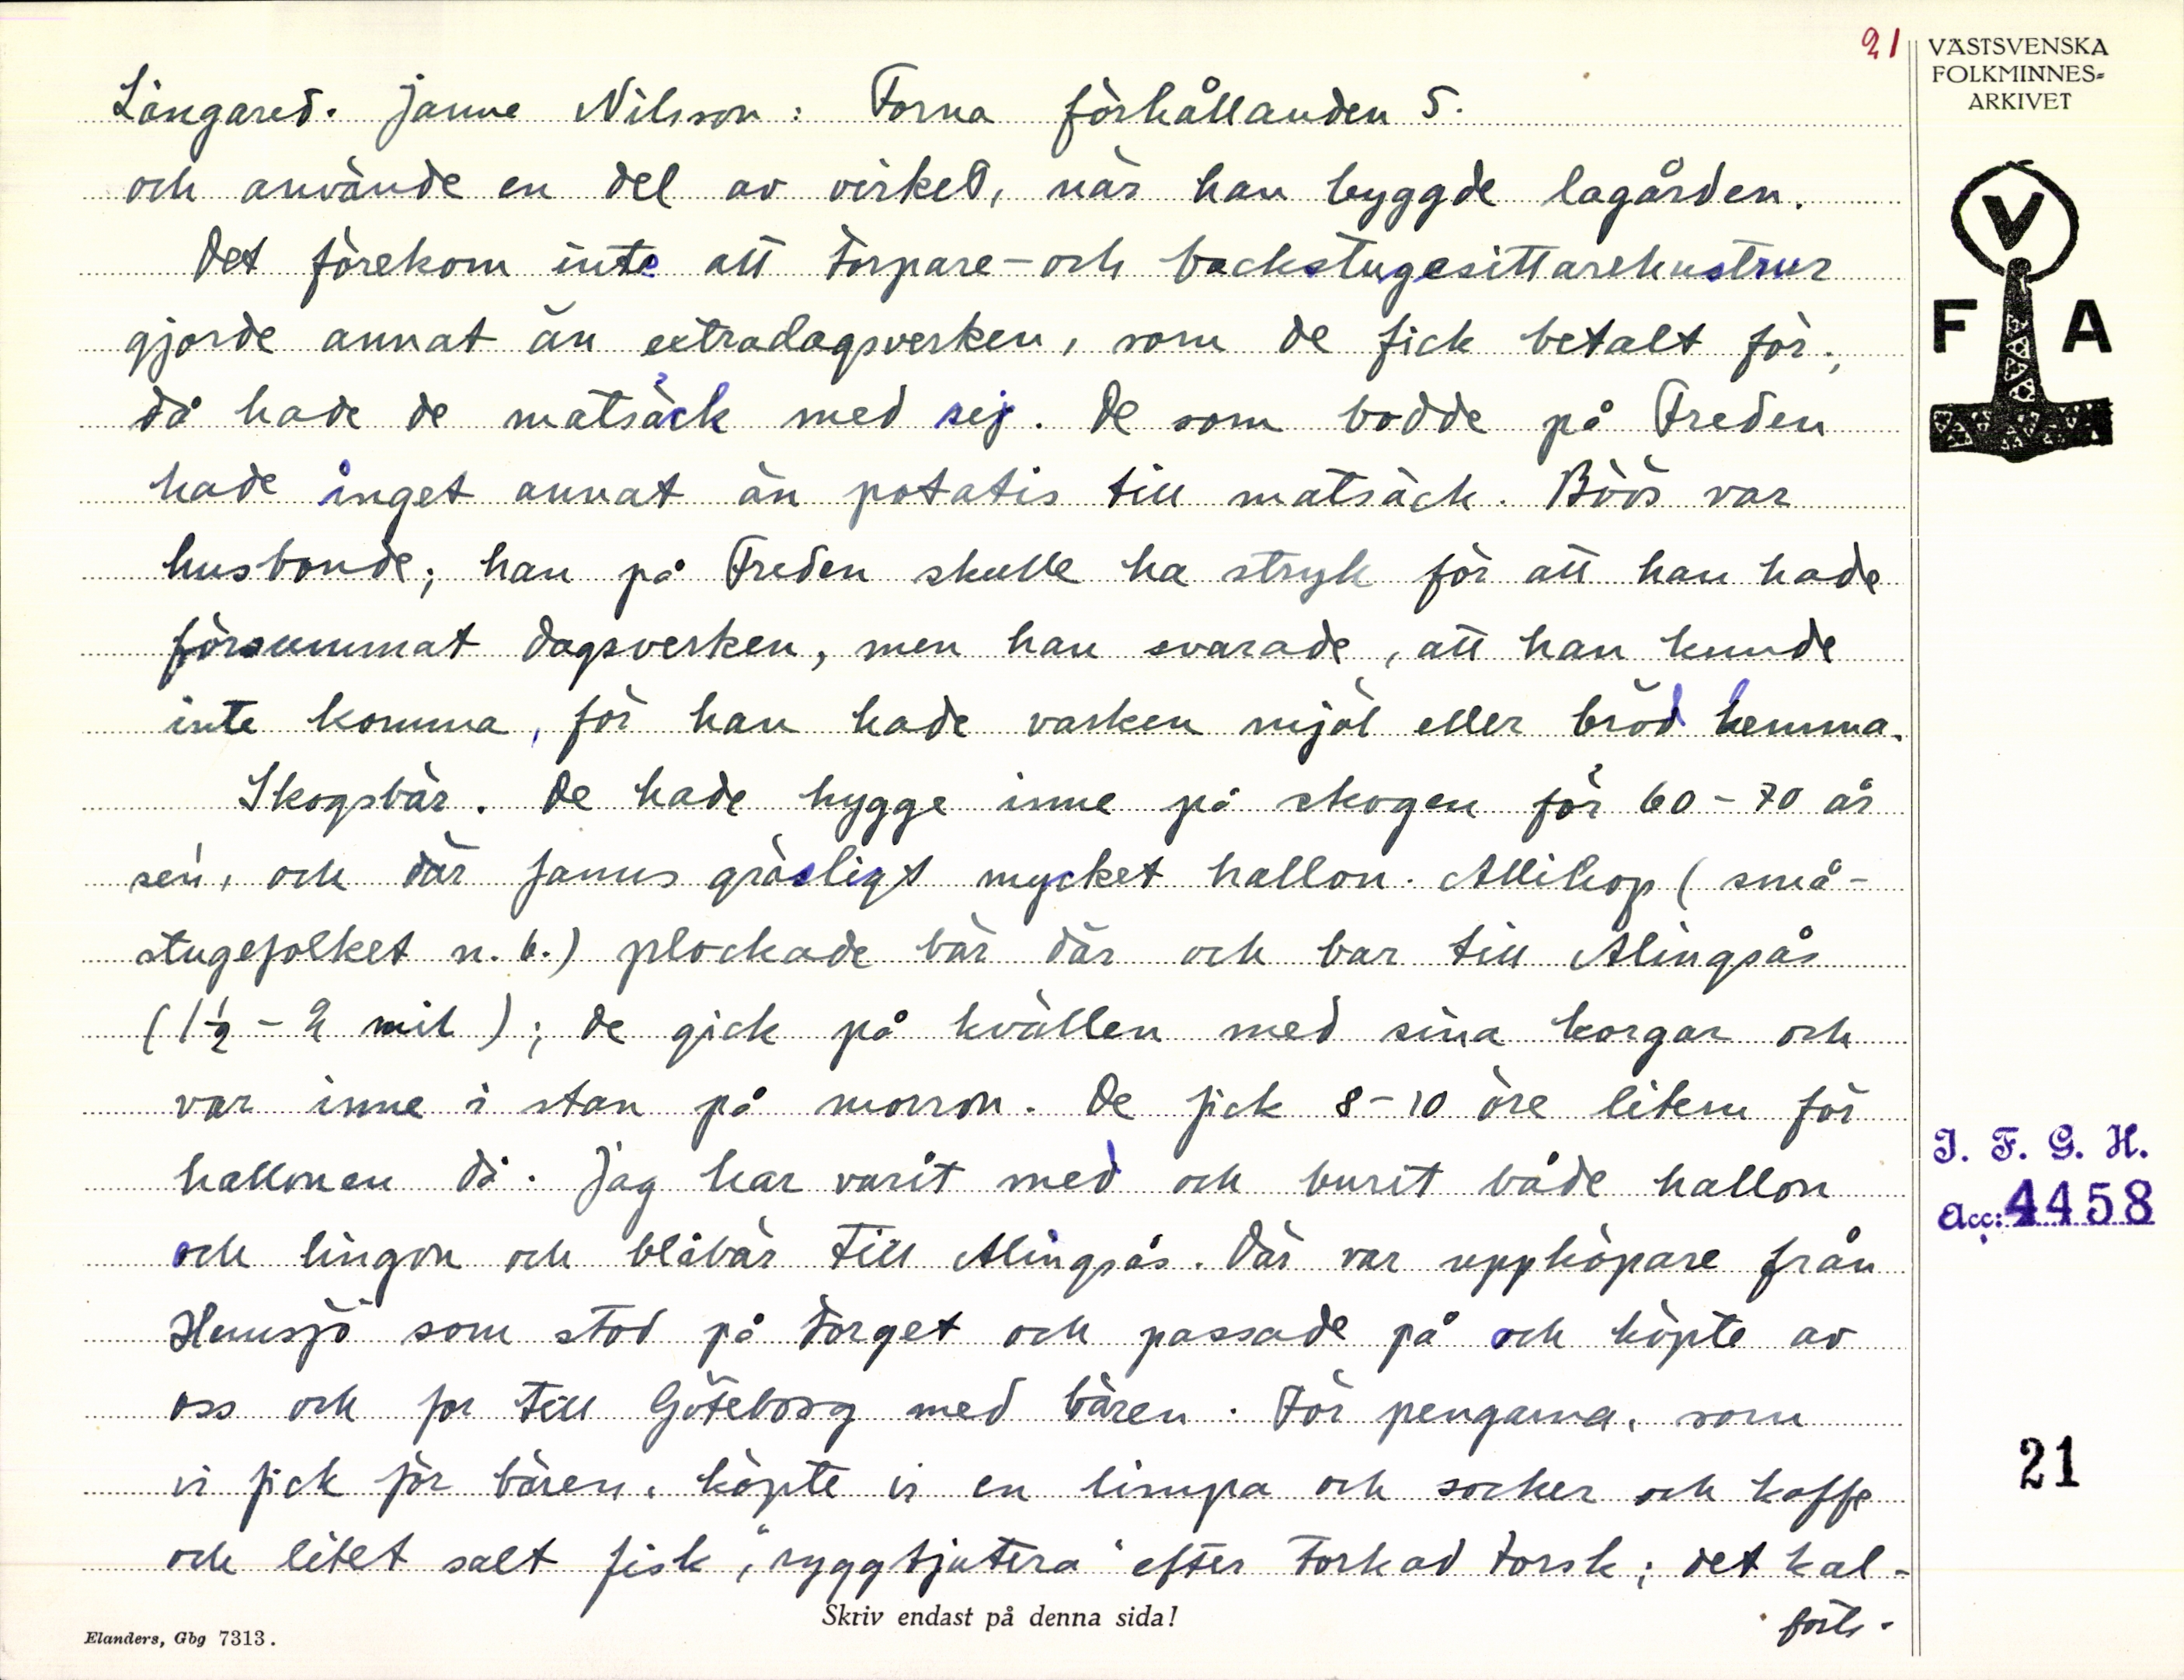 21
VÄSTSVENSKA
FOLKMINNES=
ARKIVET
Långared. Janne Nilsson: Forna förhållanden 5.
och använde en del av virket, när han byggde lagården.
Det förekom inte att torpare- och backstugesittarehustrur
gjorde annat än extradagsverken, som de fick betalt för;
då hade de matsäck med sej. De som bodde på Freden
hade inget annat än potatis till matsäck. Böös var
husbonde; han på Freden skulle ha stryk för att han hade
försummat dagsverken, men han svarade, att han kunde
inte komma, för han hade varken mjöl eller bröd hemma.
Skogsbär. De hade hygge inne på skogen för 60-70 år
sen, och där fanns gräsligt mycket hallon. Allihop (små-
stugefolket n. b.) plockade bär där och bar till Alingsås
(1½ - 2 mil); de gick på kvällen med sina korgar och
var inne i stan på morron. De fick 8-10 öre litern för
hallonen då. Jag har varit med och burit både hallon
och lingon och blåbär till Alingsås. Där var uppköpare från
Hemsjö som stod på torget och passade på och köpte av
oss och for till Göteborg med bären. För pengarna, som
vi fick för bären, köpte vi en limpa och socker och kaffe
och litet salt fisk, "ryggtjutera" efter torkad torsk; det kal-
forts.
V
F A
I. F. G. H.
Acc: 4458
21
Skriv endast på denna sida!
Elanders, Gbg 7313.